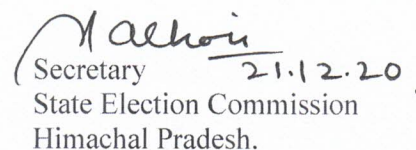 Secretary 21.12.20
State Election Commission
Himachal Pradesh.